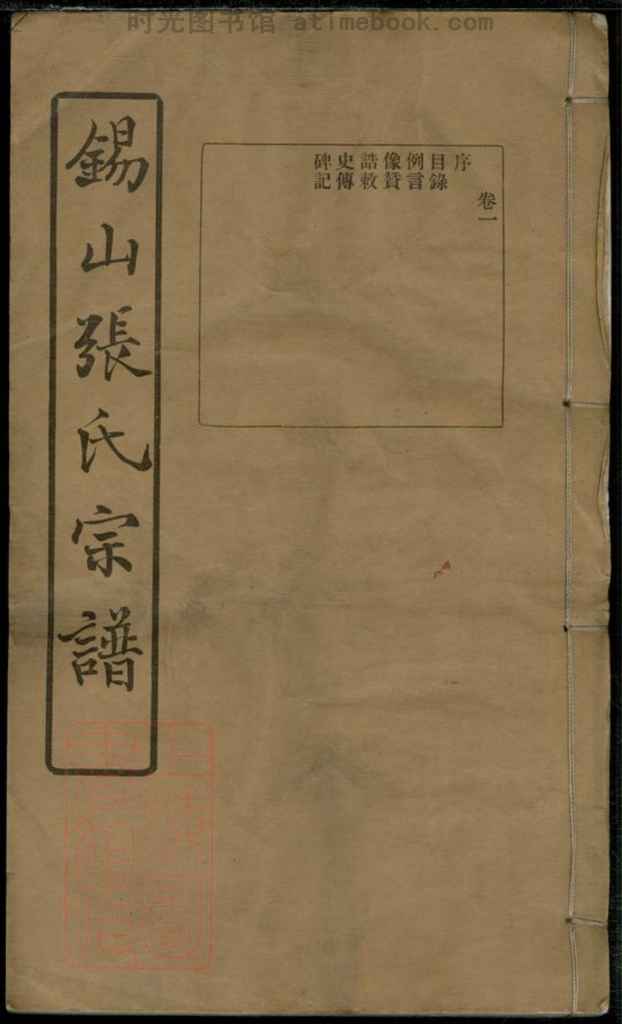 时光图书馆 atimebook.com
卷一
序
目錄
例言
像贊
誥敕
史傳
碑記
錫山張氏宗譜